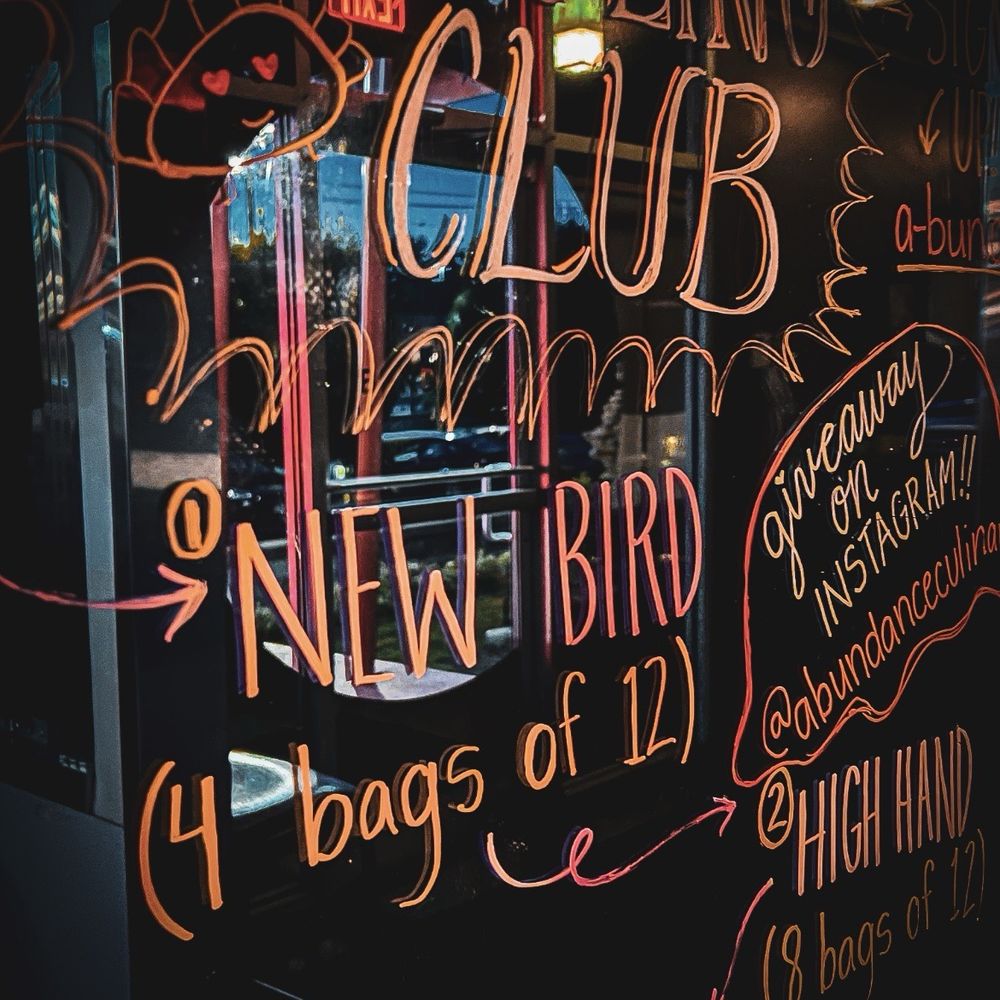 EXIT
CLUB
a-bun
giveaway
on
INSTAGRAM!!
@abundanceculina
① NEW BIRD
(4 bags of 12)
② HIGH HAND
(8 bags of 12)